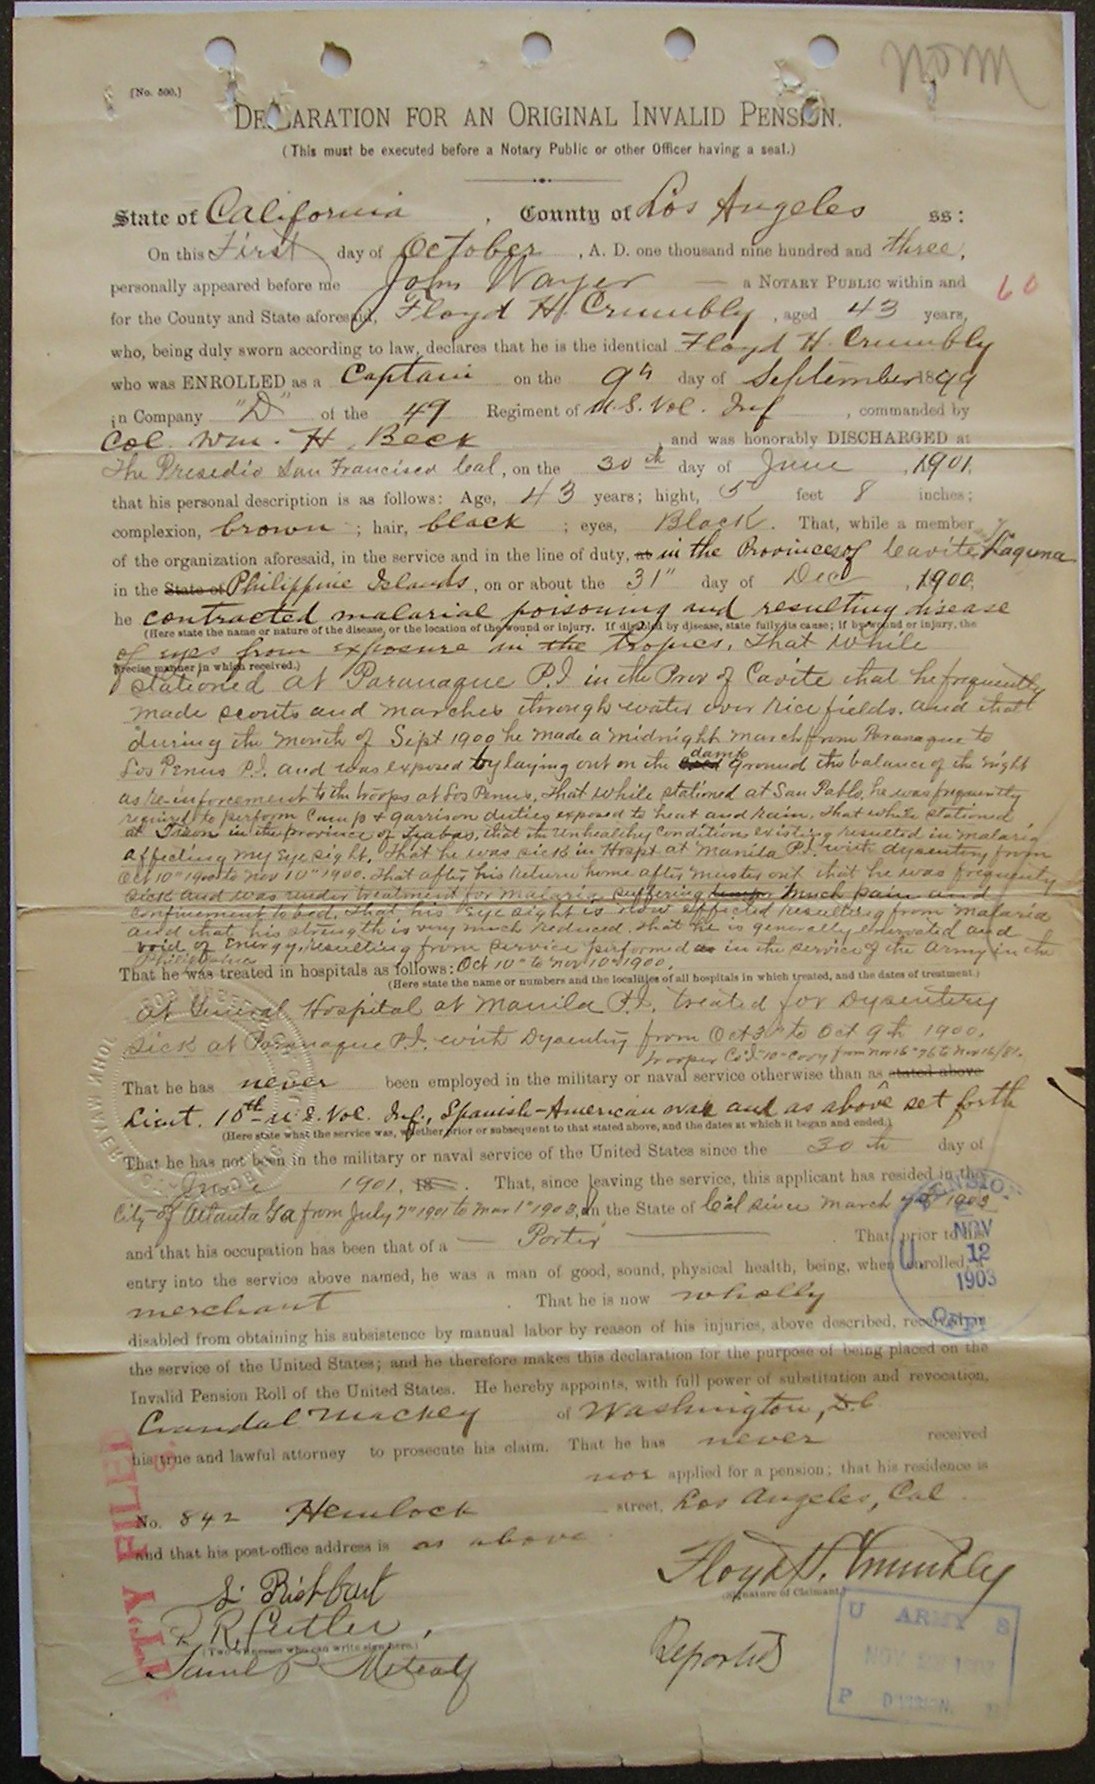 Norm
[No. 500.]
DECLARATION FOR AN ORIGINAL INVALID PENSION.
(This must be executed before a Notary Public or other Officer having a seal.)
State of California, County of Los Angeles ss:
On this First day of October, A. D. one thousand nine hundred and three,
personally appeared before me John Wayer a NOTARY PUBLIC within and
60
for the County and State aforesaid, Floyd H. Crumbly, aged 43 years,
who, being duly sworn according to law, declares that he is the identical Floyd H. Crumbly
who was ENROLLED as a Captain on the 9th day of September 1899
in Company "D" of the 49 Regiment of U.S. Vol. Inf, commanded by
Col. Wm. H. Beck, and was honorably DISCHARGED at
The Presidio San Francisco Cal, on the 30th day of June, 1901,
that his personal description is as follows: Age, 43 years; hight, 5 feet 8 inches;
complexion, brown; hair, black; eyes, Black. That, while a member
of the organization aforesaid, in the service and in the line of duty, at in the Provinces of Cavite & Laguna
in the State of Philippine Islands, on or about the 31" day of Dec, 1900,
he contracted malarial poisoning and resulting disease
(Here state the name or nature of the disease, or the location of the wound or injury. If disabled by disease, state fully its cause; if by wound or injury, the
of eyes from exposure in the tropics. That while
precise manner in which received.)
stationed at Paranaque P.I. in the Prov of Cavite that he frequently
made scouts and marches through water over rice fields. and that
during the month of Sept 1900 he made a midnight march from Paranaque to
Los Penus P.I. and was exposed by laying out on the damp ground the balance of the night
as re-inforcement to the troops at Los Penus. That while stationed at San Pablo, he was frequently
required to perform Camp & garrison duties exposed to heat and rain. That while stationed
at Tiaon in the province of Tyabas, that the unhealthy condition existing resulted in malaria
affecting my eye sight. That he was sick in Hospt at Manila P.I. with dysentery from
Oct 10" 1900 to Nov 10" 1900. That after his return home after muster out that he was frequently
sick and was under treatment for malaria suffering much pain and
confinement to bed. That his eye sight is now affected resulting from malaria
and that his strength is very much reduced, that he is generally enervated and
void of energy, resulting from service performed as in the service of the Army in the
Philippines
That he was treated in hospitals as follows: Oct 10" to Nov 10" 1900,
(Here state the name or numbers and the localities of all hospitals in which treated, and the dates of treatment.)
at General Hospital at Manila P.I. treated for Dysentery
Sick at Paranaque P.I. with Dysentry from Oct 3" to Oct 9th 1900.
Trooper Co "I" 10" Cavy from Nov 16" 76 to Nov 16/81.
That he has never been employed in the military or naval service otherwise than as stated above
Lieut. 10th U.S. Vol. Inf., Spanish-American war and as above set forth
(Here state what the service was, whether prior or subsequent to that stated above, and the dates at which it began and ended.)
That he has not been in the military or naval service of the United States since the 30th day of
June 1901, 18 . That, since leaving the service, this applicant has resided in the
City of Atlanta Ga from July 7" 1901 to Mar 1" 1903, in the State of Cal since March 1903
and that his occupation has been that of a Porter That prior to his
entry into the service above named, he was a man of good, sound, physical health, being, when enrolled, a
merchant. That he is now wholly
disabled from obtaining his subsistence by manual labor by reason of his injuries, above described, received in
the service of the United States; and he therefore makes this declaration for the purpose of being placed on the
Invalid Pension Roll of the United States. He hereby appoints, with full power of substitution and revocation,
Crandal Mackey of Washington, D.C
his true and lawful attorney to prosecute his claim. That he has never received
nor applied for a pension; that his residence is
No. 842 Hemlock street, Los Angeles, Cal.
and that his post-office address is as above
Floyd H. Crumbly
(Signature of Claimant.)
R. Cutler,
(Two witnesses who can write sign here.)
Saml P Metcalf
Reported
PENSION
NOV
12
1903
U.
OFFI
U ARMY S
NOV
P DIVISION
FILED